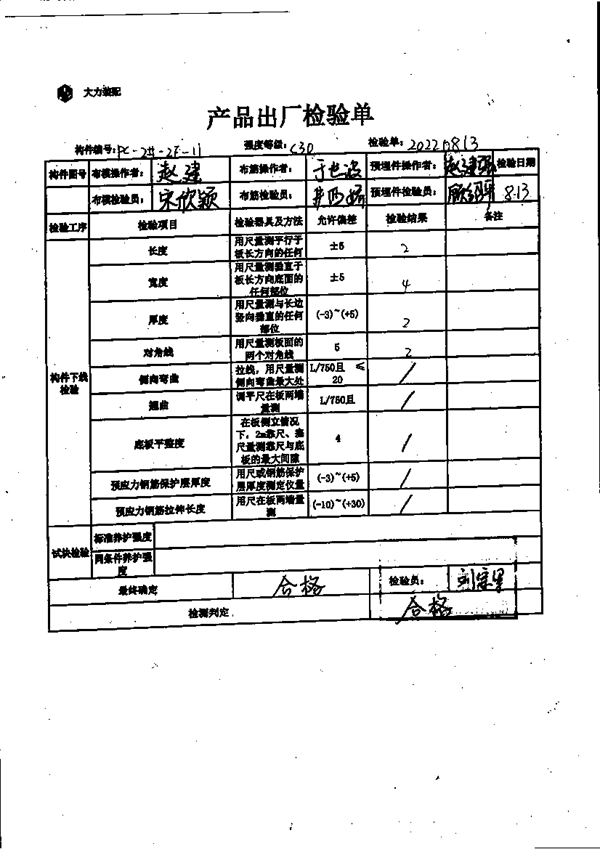 大力装配
产品出厂检验单
构件编号: PC-2#-2F-11 强度等级: C30 检验单: 20220813
构件图号 布模操作者: 赵建 布筋操作者: 预埋件操作者: 赵建强 检验日期
布模检验员: 宋欣颖 布筋检验员: 预埋件检验员: 8.13
检验工序 检验项目 检验器具及方法 允许偏差 检验结果 备注
构件下线检验
长度 用尺量测平行于板长方向的任何 ±5 2
宽度 用尺量测垂直于板长方向底面的任何部位 ±5 4
厚度 用尺量测与长边竖向垂直的任何部位 (-3)~(+5) 2
对角线 用尺量测板面的两个对角线 5 2
侧向弯曲 拉线，用尺量测侧向弯曲最大处 L/750且 ≤20 /
翘曲 调平尺在板两端量测 L/750且 /
底板平整度 在板侧立情况下，2m靠尺、塞尺量测靠尺与底板的最大间隙 4 /
预应力钢筋保护层厚度 用尺或钢筋保护层厚度测定仪量 (-3)~(+5) /
预应力钢筋拉伸长度 用尺在板两端量测 (-10)~(+30) /
试块检验 标准养护强度
同条件养护强度
最终确定 合格 检验员:
检测判定 合格